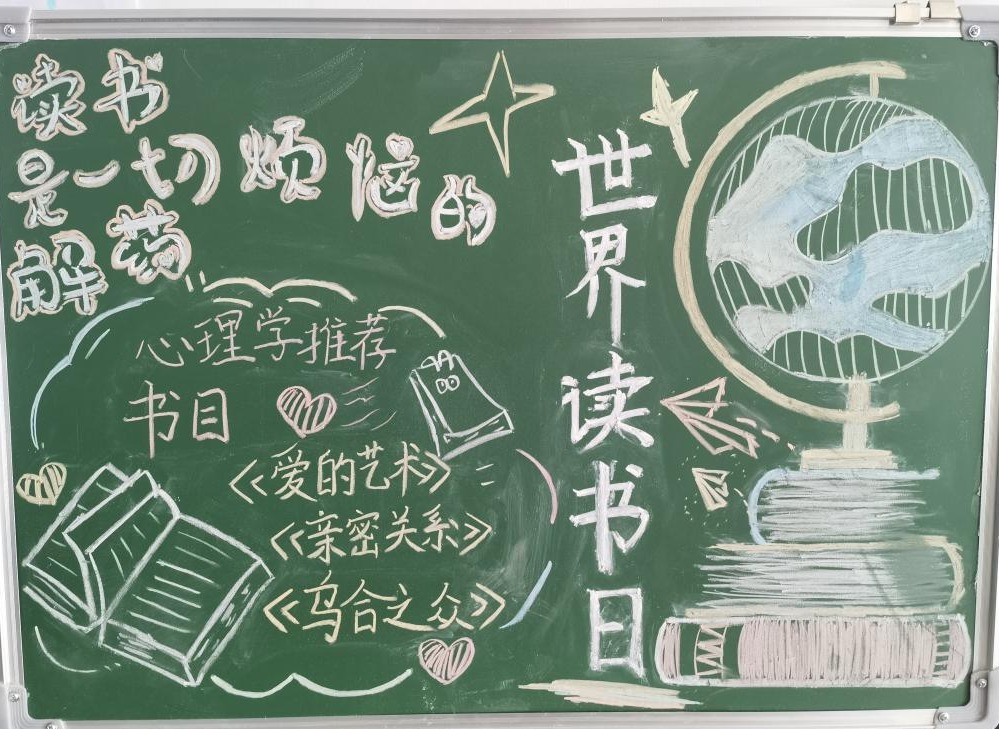 读书
是一切烦恼的
解药
心理学推荐
书目
《爱的艺术》
《亲密关系》
《乌合之众》
世界读书日